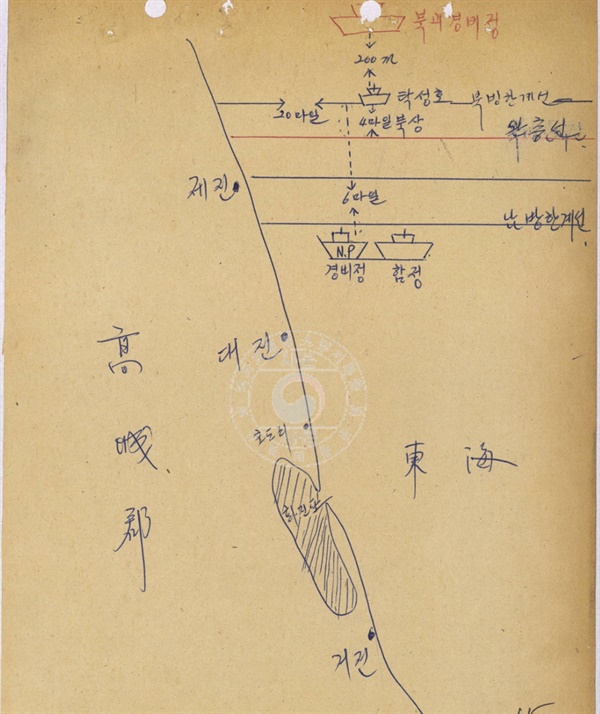 북괴경비정
200m
탁성호
북방한계선
20마일
4마일북상
제진
6마일
남방한계선
N.P
경비정
함정
高城郡
대진
초도리
東海
화진포
거진